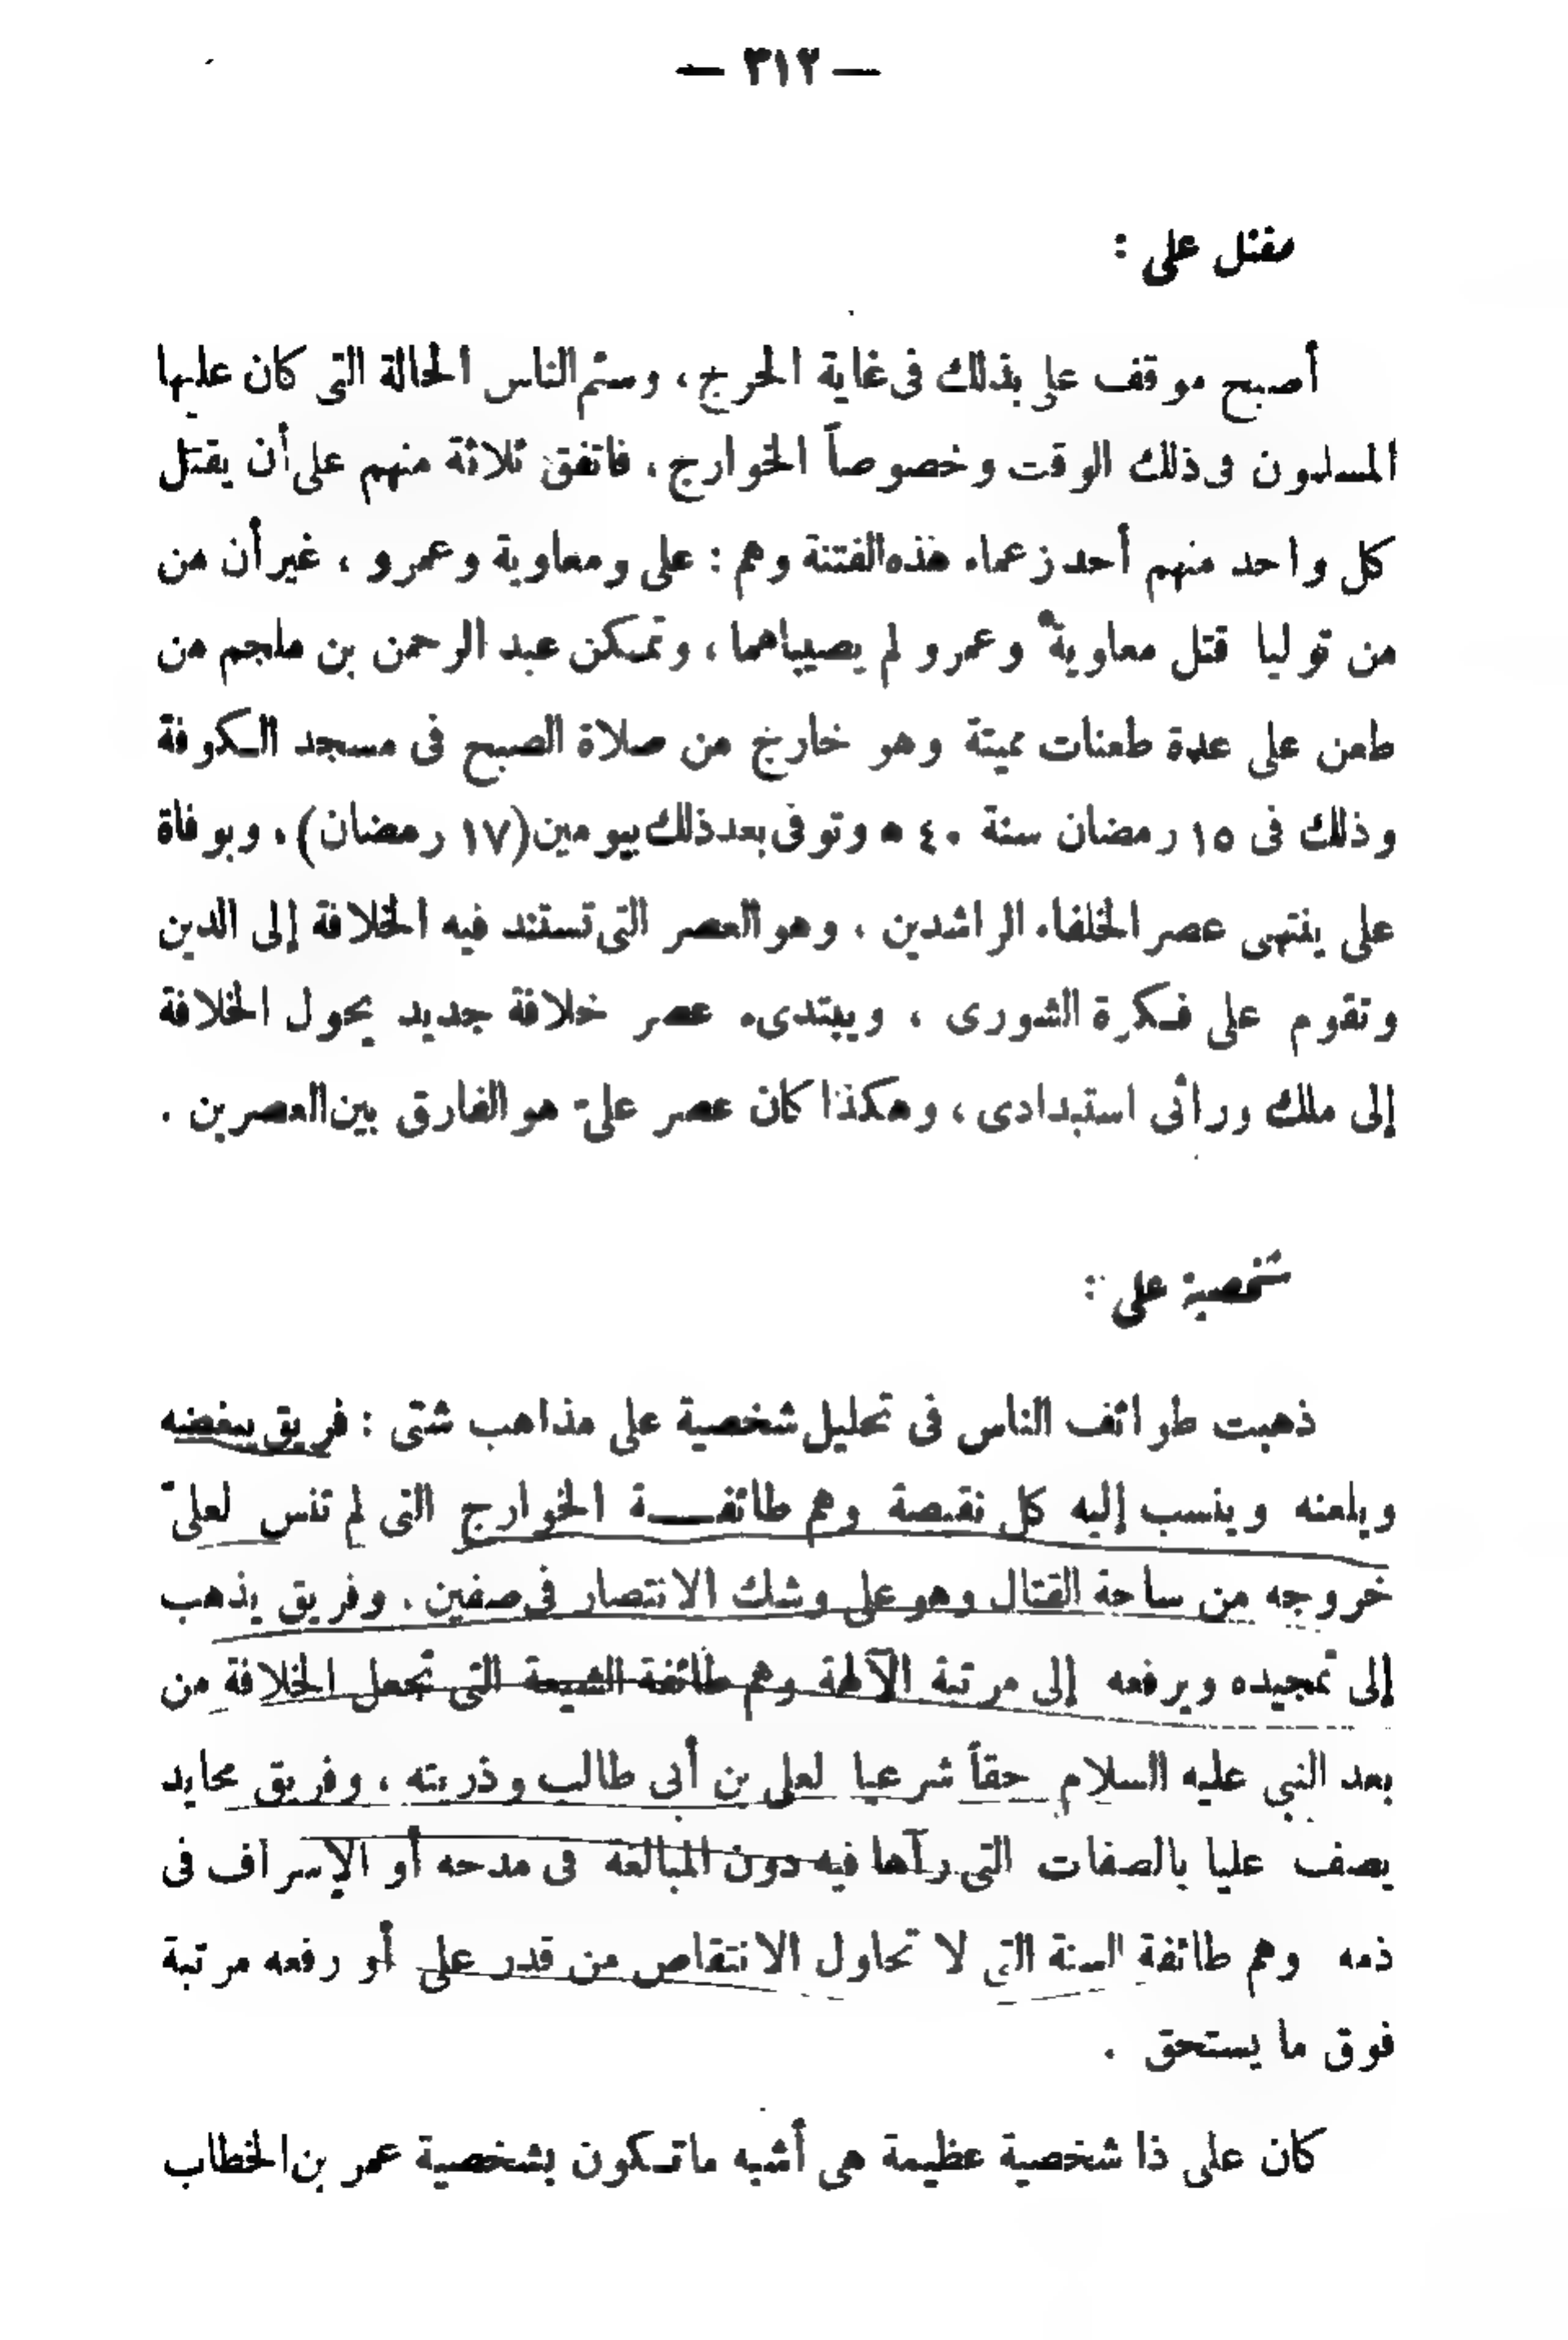 — ٣١٢ —
مقتل على :
أصبح موقف على بذلك فى غاية الحرج ، وسئم الناس الحالة التى كان عليها
المسلمون فى ذلك الوقت وخصوصاً الخوارج ، فاتفق ثلاثة منهم على أن يقتل
كل واحد منهم أحد زعماء هذه الفتنة وهم : على ومعاوية وعمرو ، غير أن من
من توليا قتل معاوية وعمرو لم يصيباهما ، وتمكن عبد الرحمن بن ملجم من
طعن على عدة طعنات مميتة وهو خارج من صلاة الصبح فى مسجد الكوفة
وذلك فى ١٥ رمضان سنة ٤٠ ه وتوفى بعد ذلك بيومين (١٧ رمضان) ، وبوفاة
على ينتهى عصر الخلفاء الراشدين ، وهو العصر التى تستند فيه الخلافة إلى الدين
وتقوم على فكرة الشورى ، ويبتدىء عصر خلافة جديد يحول الخلافة
إلى ملك وراثى استبدادى ، وهكذا كان عصر علىّ هو الفارق بين العصرين .
شخصية على :
ذهبت طوائف الناس فى تحليل شخصية على مذاهب شتى : فريق يبغضه
ويلعنه وينسب إليه كل نقيصة وهم طائفــة الخوارج التى لم تنس لعلىّ
خروجه من ساحة القتال وهو على وشك الانتصار فى صفين . وفريق يذهب
إلى تمجيده ويرفعه إلى مرتبة الآلهة وهم طائفة الشيعة التى تجعل الخلافة من
بعد النبي عليه السلام حقاً شرعيا لعلى بن أبى طالب وذريته ، وفريق محايد
يصف عليا بالصفات التى رآها فيه دون المبالغة فى مدحه أو الإسراف فى
ذمه وهم طائفة السنة التى لا تحاول الانتقاص من قدر على أو رفعه مرتبة
فوق ما يستحق .
كان على ذا شخصية عظيمة هى أشبه ما تكون بشخصية عمر بن الخطاب